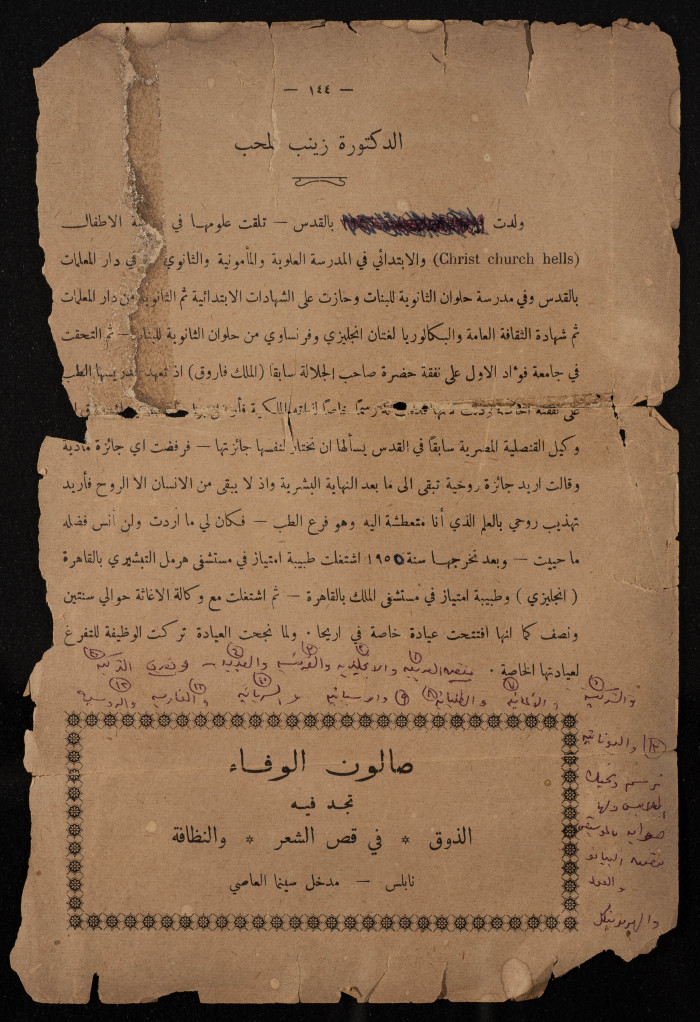 — ١٤٤ —
الدكتورة زينب لمحب
ولدت بالقدس — تلقت علومها في الاطفال
(Christ church hells) والابتدائي في المدرسة العلوية والمأمونية والثانوي في دار المعلمات
بالقدس وفي مدرسة حلوان الثانوية للبنات وحازت على الشهادات الابتدائية ثم الثانوية من دار المعلمات
ثم شهادة الثقافة العامة والبكالوريا لغتان انجليزي وفرنساوي من حلوان الثانوية للبنات — ثم التحقت
في جامعة فؤاد الاول على نفقة حضرة صاحب الجلالة سابقا (الملك فاروق) اذ تعهد الطب
على نفقته
وكيل القنصلية المصرية سابقاً في القدس يسألها ان تختار لنفسها جائزتها — فرفضت اي جائزة مادية
وقالت اريد جائزة روحية تبقى الى ما بعد النهاية البشرية واذ لا يبقى من الانسان الا الروح فأريد
تهذيب روحي بالعلم الذي أنا متعطشة اليه وهو فرع الطب — فكان لي ما أردت ولن أنس فضله
ما حييت — وبعد تخرجها سنة ١٩٥٥ اشتغلت طبيبة امتياز في مستشفى هرمل التبشيري بالقاهرة
( انجليزي ) وطبيبة امتياز في مستشفى الملك بالقاهرة — ثم اشتغلت مع وكالة الاغاثة حوالي سنتين
ونصف كما انها افتتحت عيادة خاصة في اريحا . ولما نجحت العيادة تركت الوظيفة للتفرغ
لعيادتها الخاصة . العربية والانجليزية والفرنسية والعبرية
والالمانية والطليانية والسريانية والفارسية والروسية
واليونانية
ترسم
الملابس ولها
بالموسيقى
البيانو
والعود
صالون الوفاء
تجد فيه
الذوق * في قص الشعر * والنظافة
نابلس — مدخل سينما العاصي